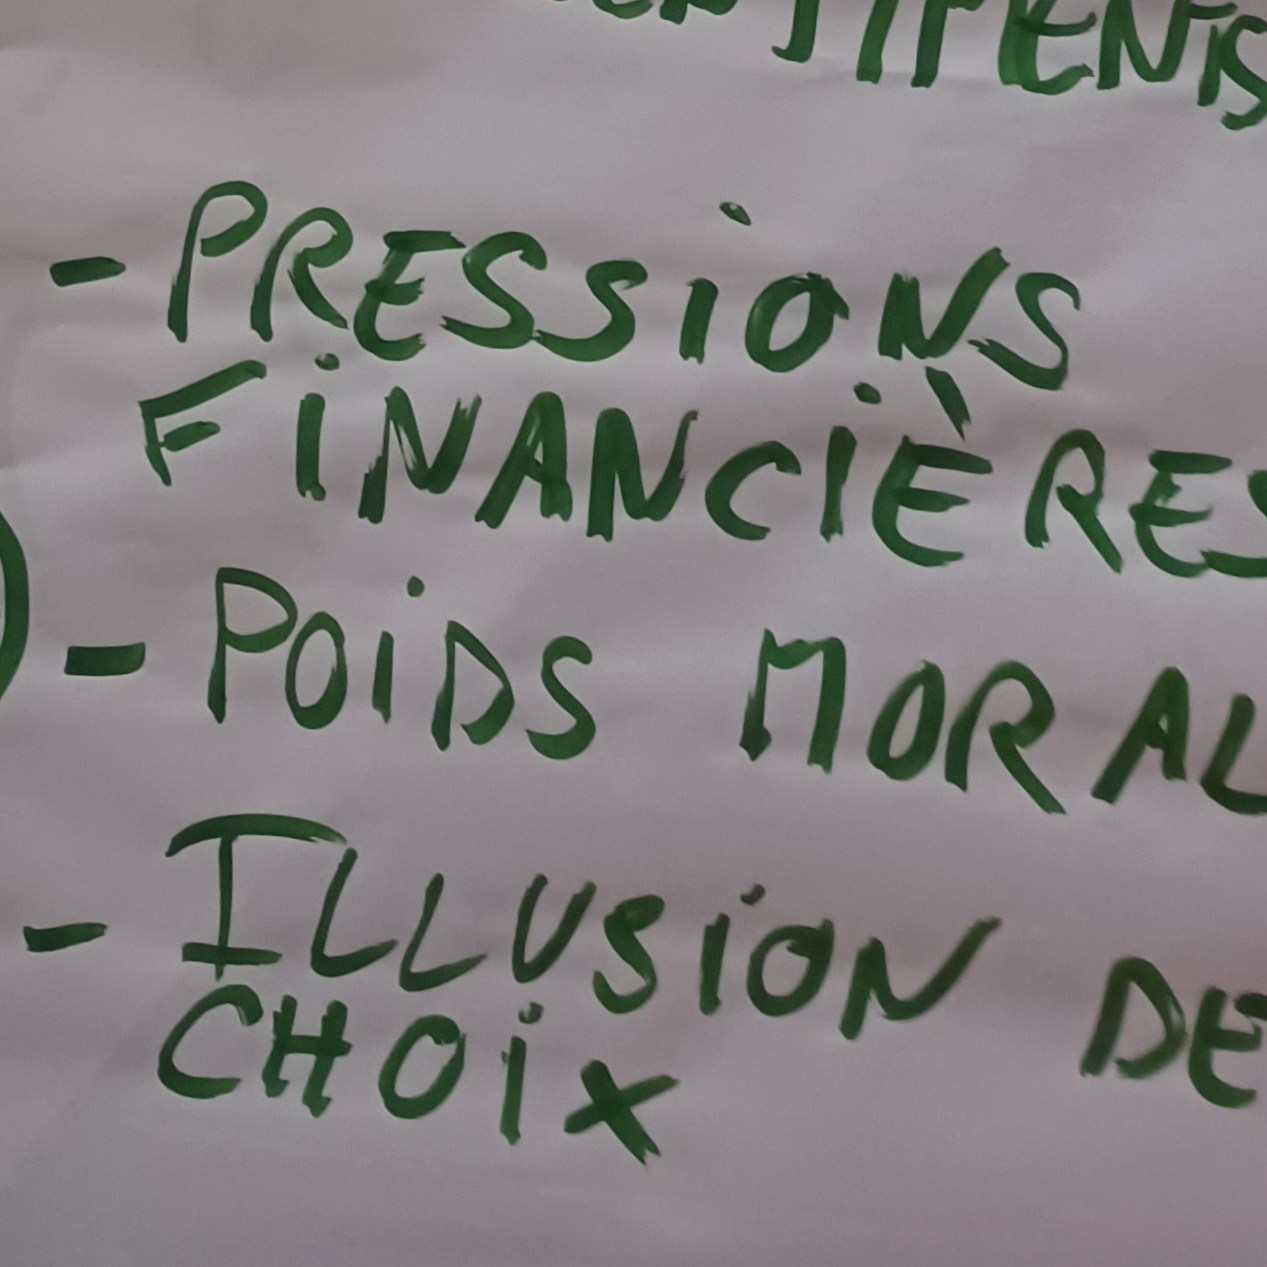 - PRESSIONS
FINANCIÈRES
- POIDS MORAL
- ILLUSION DE
CHOIX